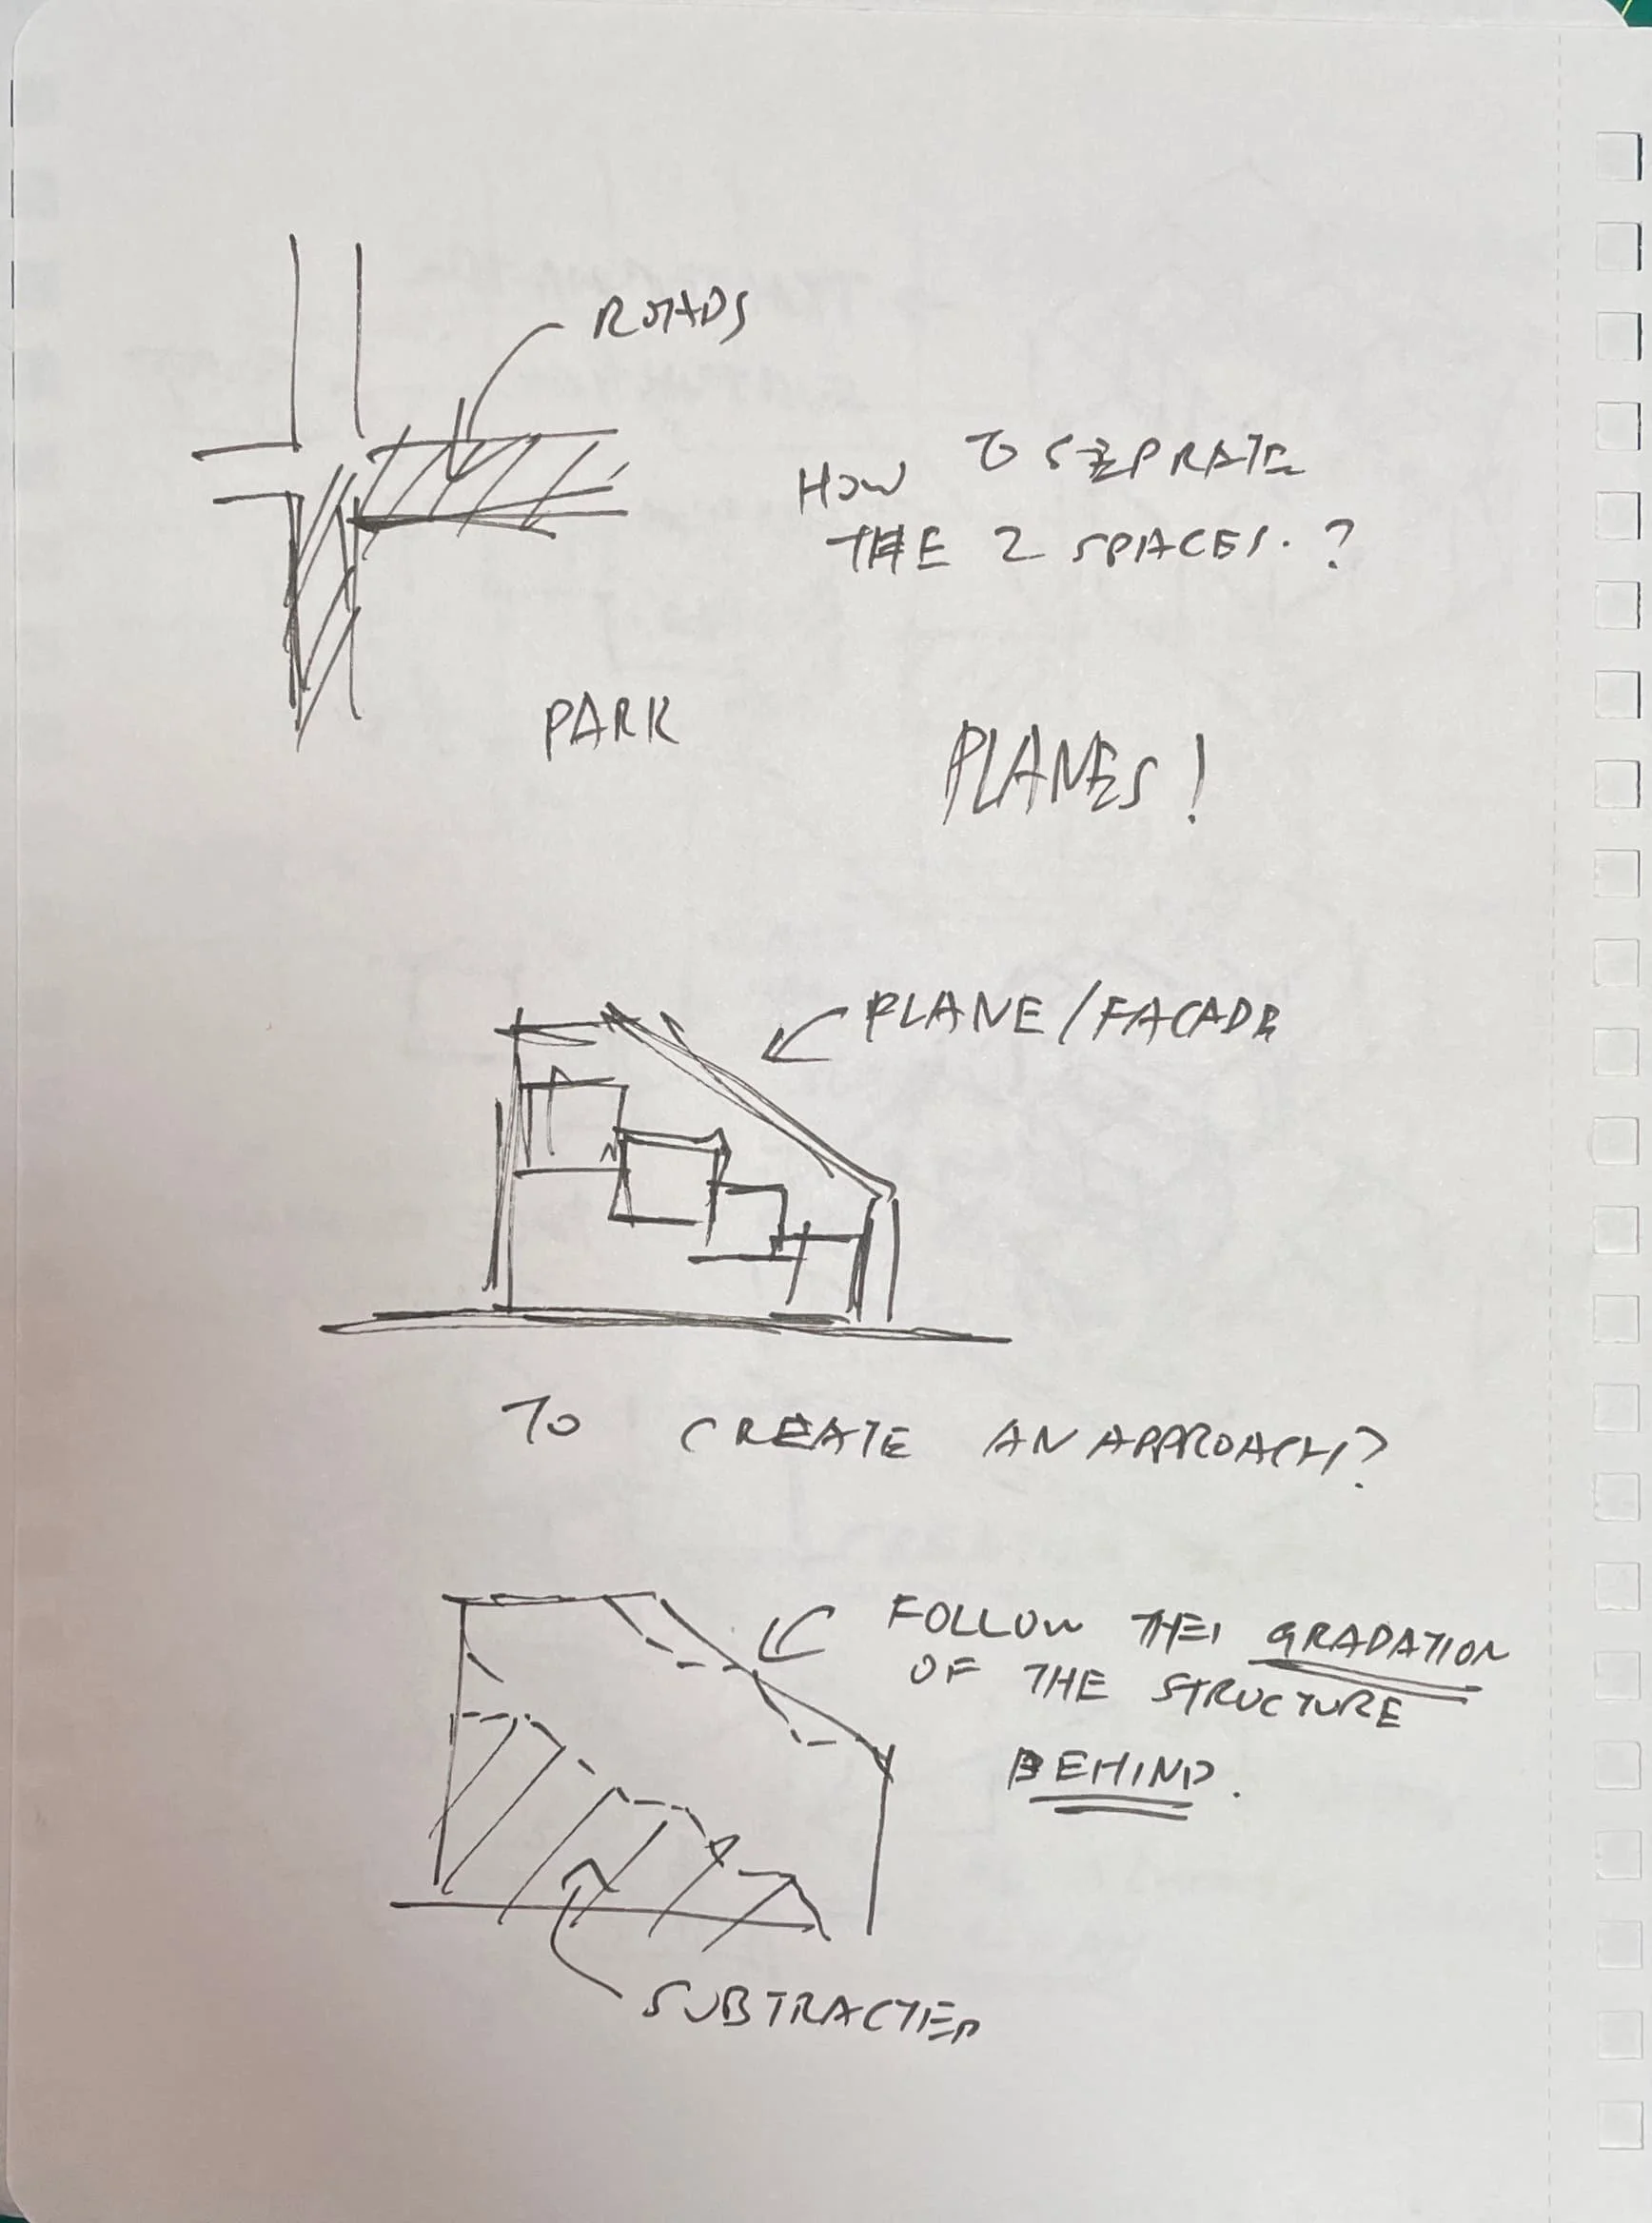 ROADS
HOW TO SEPRATE
THE 2 SPACES.?
PARK
PLANES!
PLANE/FACADE
TO CREATE AN APPROACH?
FOLLOW THE GRADATION
OF THE STRUCTURE
BEHIND.
SUBTRACTED